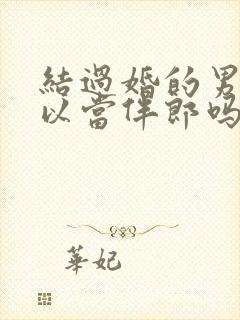 結過婚的男
以當伴郎嗎
華妃